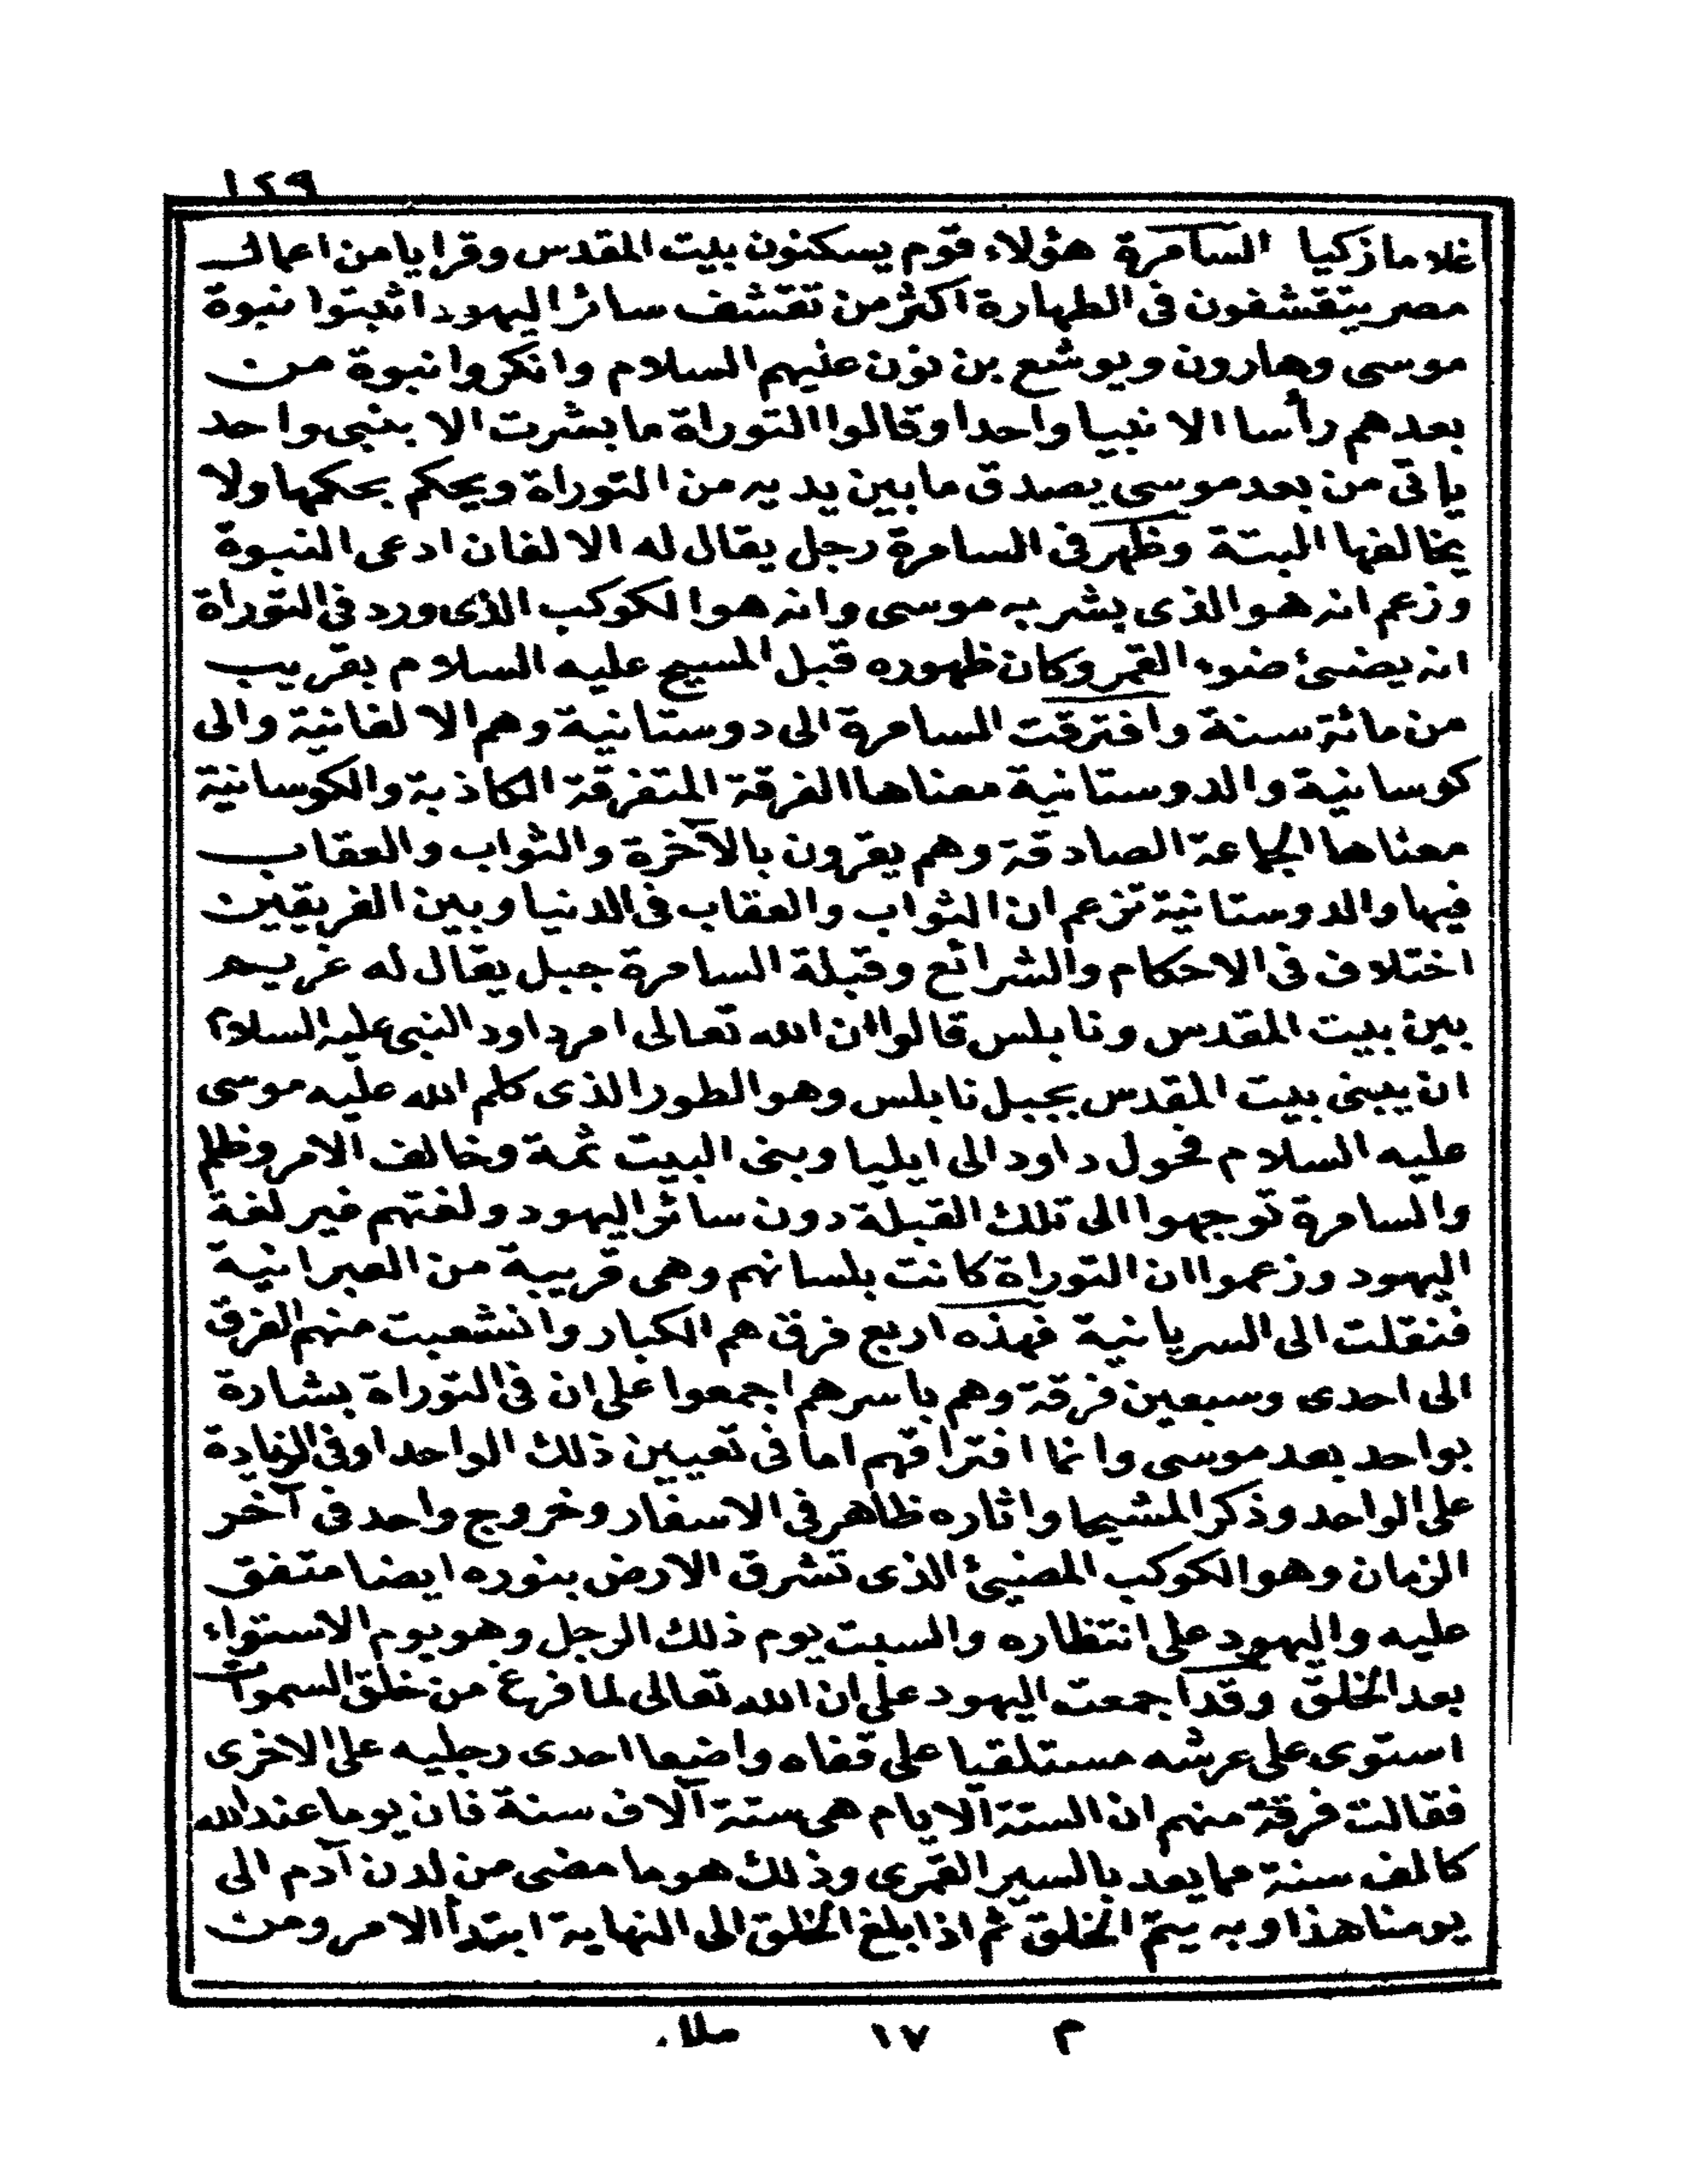 ١٢٩
غلاما زكيا السامرة هؤلاء قوم يسكنون بيت المقدس وقرايا من اعمال
مصر يتقشفون فى الطهارة اكثر من تقشف سائر اليهود اثبتوا نبوة
موسى وهارون ويوشع بن نون عليهم السلام وانكروا نبوة من
بعدهم رأسا الا نبيا واحدا وقالوا التوراة ما بشرت الا بنبى واحد
ياتى من بعد موسى يصدق ما بين يديه من التوراة ويحكم بحكمها ولا
يخالفها البتة وظهر فى السامرة رجل يقال له الالفان ادعى النبوة
وزعم انه هو الذى بشر به موسى وانه هو الكوكب الذى ورد فى التوراة
انه يضىئ ضوء القمر وكان ظهوره قبل المسيح عليه السلام بقريب
من مائة سنة وافترقت السامرة الى دوستانية وهم الالفانية والى
كوسانية والدوستانية معناها الفرقة المتفرقة الكاذبة والكوسانية
معناها الجماعة الصادقة وهم يقرون بالآخرة والثواب والعقاب
فيها والدوستانية تزعم ان الثواب والعقاب فى الدنيا وبين الفريقين
اختلاف فى الاحكام والشرائع وقبلة السامرة جبل يقال له غريم
بين بيت المقدس ونابلس قالوا ان الله تعالى امر داود النبى عليه السلام
ان يبنى بيت المقدس بجبل نابلس وهو الطور الذى كلم الله عليه موسى
عليه السلام فحول داود الى ايليا وبنى البيت ثمة وخالف الامر وظلم
والسامرة توجهوا الى تلك القبلة دون سائر اليهود ولغتهم غير لغة
اليهود وزعموا ان التوراة كانت بلسانهم وهى قريبة من العبرانية
فنقلت الى السريانية فهذه اربع فرق هم الكبار وانشعبت منهم الفرق
الى احدى وسبعين فرقة وهم باسرهم اجمعوا على ان فى التوراة بشارة
بواحد بعد موسى وانما افتراقهم اما فى تعيين ذلك الواحد او فى الزيادة
على الواحد وذكر المشيحا واثاره ظاهر فى الاسفار وخروج واحد فى آخر
الزمان وهو الكوكب المضيئ الذى تشرق الارض بنوره ايضا متفق
عليه واليهود على انتظاره والسبت يوم ذلك الرجل وهو يوم الاستواء
بعد الخلق وقد اجمعت اليهود على ان الله تعالى لما فرغ من خلق السموات
استوى على عرشه مستلقيا على قفاه واضعا احدى رجليه على الاخرى
فقالت فرقة منهم ان الستة الايام هى ستة آلاف سنة فان يوما عند الله
كالف سنة مما يعد بالسير القمرى وذلك هو ما مضى من لدن آدم الى
يومنا هذا وبه يتم الخلق ثم اذا بلغ الخلق الى النهاية ابتدأ الامر ومن
م ١٧ ملا.